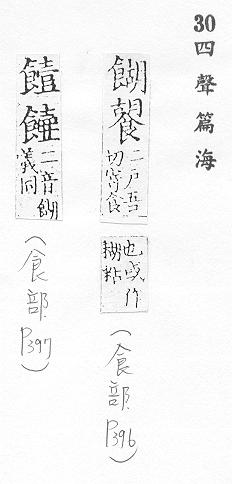 30 四聲篇海
餬
二戶吾
切寄食
也或作
(食部
P396)
二音餬
義同
(食部
P397)